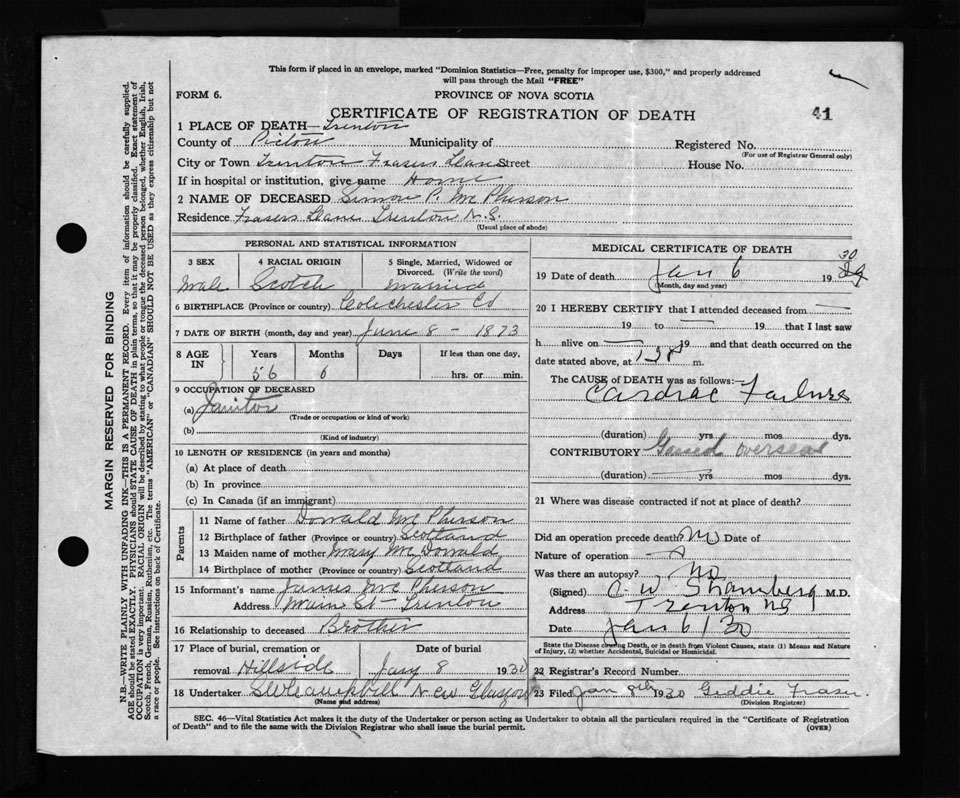 This form if placed in an envelope, marked "Dominion Statistics—Free, penalty for improper use, $300," and properly addressed
will pass through the Mail "FREE"
FORM 6.
PROVINCE OF NOVA SCOTIA
CERTIFICATE OF REGISTRATION OF DEATH
41
1 PLACE OF DEATH—Trenton
County of Pictou Municipality of Registered No.
(For use of Registrar General only)
City or Town Trenton Frasers Lane Street House No.
If in hospital or institution, give name Home
2 NAME OF DECEASED Simon P. McPherson
Residence Frasers Lane Trenton N.S.
(Usual place of abode)
PERSONAL AND STATISTICAL INFORMATION
3 SEX 4 RACIAL ORIGIN 5 Single, Married, Widowed or
Divorced. (Write the word)
Male Scotch Married
6 BIRTHPLACE (Province or country) Colechester Co
7 DATE OF BIRTH (month, day and year) June 8 - 1873
8 AGE IN Years Months Days If less than one day,
56 6 hrs. or min.
9 OCCUPATION OF DECEASED
(a) Janitor
(Trade or occupation or kind of work)
(b)
(Kind of industry)
10 LENGTH OF RESIDENCE (in years and months)
(a) At place of death
(b) In province
(c) In Canada (if an immigrant)
Parents
11 Name of father Donald McPherson
12 Birthplace of father (Province or country) Scotland
13 Maiden name of mother Mary McDonald
14 Birthplace of mother (Province or country) Scotland
15 Informant's name James McPherson
Address Main St - Trenton
16 Relationship to deceased Brother
17 Place of burial, cremation or Date of burial
removal Hillside Jany 8 1930
18 Undertaker New Glasgow
(Name and address)
MEDICAL CERTIFICATE OF DEATH
30
19 Date of death Jan 6 19 29
(Month, day and year)
20 I HEREBY CERTIFY that I attended deceased from
19 to 19 that I last saw
h alive on 19 and that death occurred on the
date stated above, at m.
The CAUSE of DEATH was as follows:—
Cardiac Failure
(duration) yrs mos dys.
CONTRIBUTORY Gassed overseas
(duration) yrs mos dys.
21 Where was disease contracted if not at place of death?
Did an operation precede death? No Date of
Nature of operation
Was there an autopsy? No
(Signed) C. W. M.D.
Address Trenton NS
Date Jan 6/30
State the Disease causing Death, or in death from Violent Causes, state (1) Means and Nature
of Injury, (2) whether Accidental, Suicidal or Homicidal.
22 Registrar's Record Number
23 Filed Jan 8th 1930 Geddie Fraser
(Division Registrar)
SEC. 46—Vital Statistics Act makes it the duty of the Undertaker or person acting as Undertaker to obtain all the particulars required in the "Certificate of Registration
of Death" and to file the same with the Division Registrar who shall issue the burial permit.
(OVER)
MARGIN RESERVED FOR BINDING
N.B.—WRITE PLAINLY WITH UNFADING INK—THIS IS A PERMANENT RECORD. Every item of information should be carefully supplied.
AGE should be stated EXACTLY. PHYSICIANS should STATE CAUSE OF DEATH in plain terms, so that it may be properly classified. Exact statement of
OCCUPATION is very important. RACIAL ORIGIN will be described by stating to what people or tongue the deceased person belonged, whether English, Irish,
Scotch, French, German, Russian, Ruthenian, etc. The terms "AMERICAN" or "CANADIAN" SHOULD NOT BE USED as they express citizenship but not
a race or people. See instructions on back of Certificate.